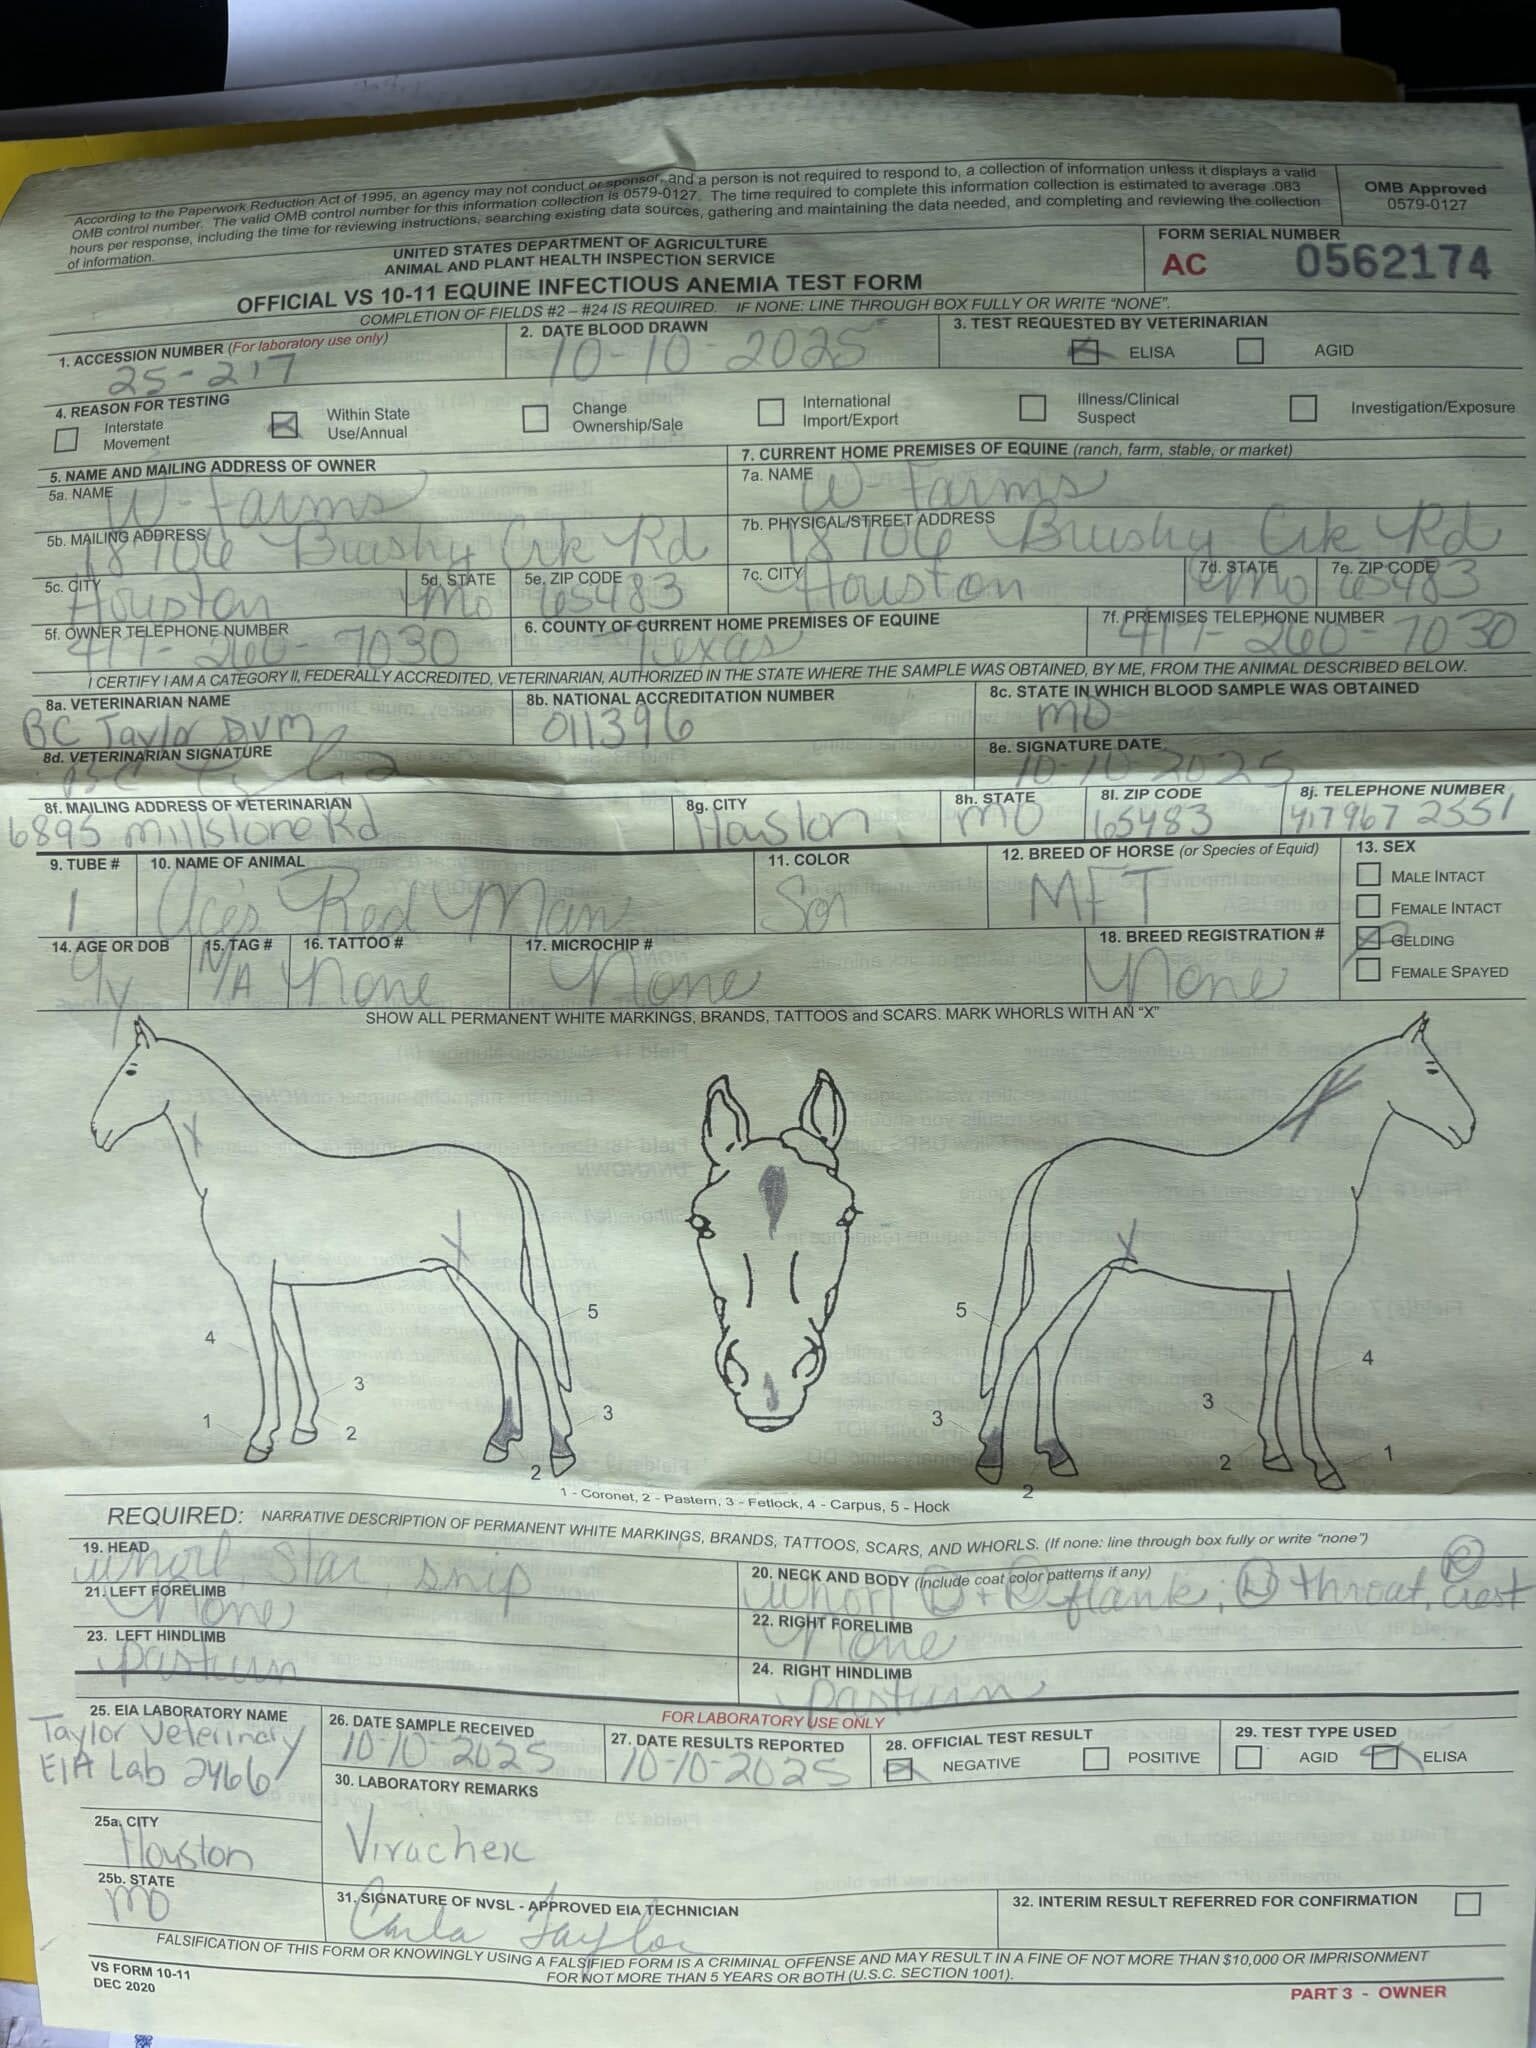 According to the Paperwork Reduction Act of 1995, an agency may not conduct or sponsor, and a person is not required to respond to, a collection of information unless it displays a valid
OMB control number. The valid OMB control number for this information collection is 0579-0127. The time required to complete this information collection is estimated to average .083
hours per response, including the time for reviewing instructions, searching existing data sources, gathering and maintaining the data needed, and completing and reviewing the collection
of information.
OMB Approved
0579-0127
UNITED STATES DEPARTMENT OF AGRICULTURE
ANIMAL AND PLANT HEALTH INSPECTION SERVICE
OFFICIAL VS 10-11 EQUINE INFECTIOUS ANEMIA TEST FORM
FORM SERIAL NUMBER
AC 0562174
COMPLETION OF FIELDS #2 – #24 IS REQUIRED. IF NONE: LINE THROUGH BOX FULLY OR WRITE "NONE".
1. ACCESSION NUMBER (For laboratory use only)
25-217
2. DATE BLOOD DRAWN
10-10-2025
3. TEST REQUESTED BY VETERINARIAN
ELISA AGID
4. REASON FOR TESTING
Interstate Movement
Within State Use/Annual
Change Ownership/Sale
International Import/Export
Illness/Clinical Suspect
Investigation/Exposure
5. NAME AND MAILING ADDRESS OF OWNER
5a. NAME
W-Farms
5b. MAILING ADDRESS
18706 Brushy Crk Rd
5c. CITY
Houston
5d. STATE
Mo
5e. ZIP CODE
65483
5f. OWNER TELEPHONE NUMBER
417-260-7030
6. COUNTY OF CURRENT HOME PREMISES OF EQUINE
Texas
7. CURRENT HOME PREMISES OF EQUINE (ranch, farm, stable, or market)
7a. NAME
W-Farms
7b. PHYSICAL/STREET ADDRESS
18706 Brushy Crk Rd
7c. CITY
Houston
7d. STATE
Mo
7e. ZIP CODE
65483
7f. PREMISES TELEPHONE NUMBER
417-260-7030
I CERTIFY I AM A CATEGORY II, FEDERALLY ACCREDITED, VETERINARIAN, AUTHORIZED IN THE STATE WHERE THE SAMPLE WAS OBTAINED, BY ME, FROM THE ANIMAL DESCRIBED BELOW.
8a. VETERINARIAN NAME
BC Taylor DVM
8b. NATIONAL ACCREDITATION NUMBER
011396
8c. STATE IN WHICH BLOOD SAMPLE WAS OBTAINED
MO
8d. VETERINARIAN SIGNATURE
8e. SIGNATURE DATE
10-10-2025
8f. MAILING ADDRESS OF VETERINARIAN
6895 Millstone Rd
8g. CITY
Houston
8h. STATE
MO
8I. ZIP CODE
65483
8j. TELEPHONE NUMBER
417 967 2551
9. TUBE #
1
10. NAME OF ANIMAL
Ace's Red Man
11. COLOR
Sor
12. BREED OF HORSE (or Species of Equid)
MFT
13. SEX
MALE INTACT
FEMALE INTACT
GELDING
FEMALE SPAYED
14. AGE OR DOB
9y
15. TAG #
N/A
16. TATTOO #
None
17. MICROCHIP #
None
18. BREED REGISTRATION #
None
SHOW ALL PERMANENT WHITE MARKINGS, BRANDS, TATTOOS and SCARS. MARK WHORLS WITH AN "X"
X X X X
5 5
4 4
3 3
1 2 3 3 2 1
2 2
1 - Coronet, 2 - Pastern, 3 - Fetlock, 4 - Carpus, 5 - Hock
REQUIRED: NARRATIVE DESCRIPTION OF PERMANENT WHITE MARKINGS, BRANDS, TATTOOS, SCARS, AND WHORLS. (If none: line through box fully or write "none")
19. HEAD
Whorl, Star snip
20. NECK AND BODY (Include coat color patterns if any)
Whorl L + R flank; L throat, R Crest
21. LEFT FORELIMB
None
22. RIGHT FORELIMB
None
23. LEFT HINDLIMB
pasturn
24. RIGHT HINDLIMB
pasturn
FOR LABORATORY USE ONLY
25. EIA LABORATORY NAME
Taylor Veterinary
EIA Lab 2466
25a. CITY
Houston
25b. STATE
MO
26. DATE SAMPLE RECEIVED
10-10-2025
27. DATE RESULTS REPORTED
10-10-2025
28. OFFICIAL TEST RESULT
NEGATIVE POSITIVE
29. TEST TYPE USED
AGID ELISA
30. LABORATORY REMARKS
Virachek
31. SIGNATURE OF NVSL - APPROVED EIA TECHNICIAN
Carla Taylor
32. INTERIM RESULT REFERRED FOR CONFIRMATION
FALSIFICATION OF THIS FORM OR KNOWINGLY USING A FALSIFIED FORM IS A CRIMINAL OFFENSE AND MAY RESULT IN A FINE OF NOT MORE THAN $10,000 OR IMPRISONMENT
FOR NOT MORE THAN 5 YEARS OR BOTH (U.S.C. SECTION 1001).
VS FORM 10-11
DEC 2020
PART 3 - OWNER